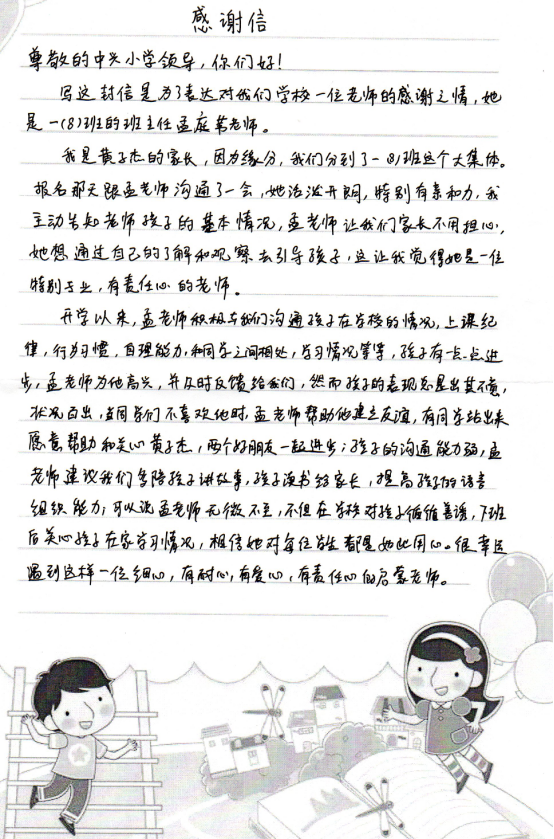 感谢信
尊敬的中兴小学领导，你们好！
写这封信是为了表达对我们学校一位老师的感谢之情，她
是一(8)班的班主任孟庭苇老师。
我是黄子杰的家长，因为缘分，我们分到了一(8)班这个大集体。
报名那天跟孟老师沟通了一会，她活泼开朗，特别有亲和力，我
主动告知老师孩子的基本情况，孟老师让我们家长不用担心，
她想通过自己的了解和观察去引导孩子，这让我觉得她是一位
特别专业，有责任心的老师。
开学以来，孟老师积极与我们沟通孩子在学校的情况，上课纪
律，行为习惯，自理能力，和同学之间相处，学习情况等等，孩子有一点一点进
步，孟老师为他高兴，并及时反馈给我们，然而孩子的表现总是出其不意，
状况百出，当同学们不喜欢他时，孟老师帮助他建立友谊，有同学站出来
愿意帮助和关心黄子杰，两个好朋友一起进步；孩子的沟通能力弱，孟
老师建议我们多陪孩子讲故事，孩子读书给家长，提高孩子的语言
组织能力；可以说孟老师无微不至，不但在学校对孩子循循善诱，下班
后关心孩子在家学习情况，相信她对每位学生都是如此用心。很幸运
遇到这样一位细心，有耐心，有爱心，有责任心的启蒙老师。